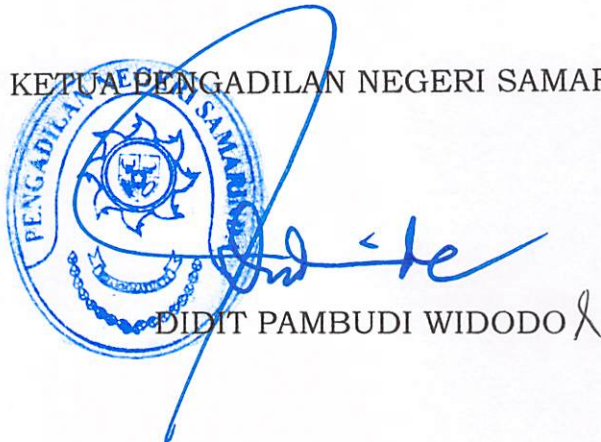 KETUA PENGADILAN NEGERI SAMAR
PENGADILAN NEGERI SAMARI
DIDIT PAMBUDI WIDODO